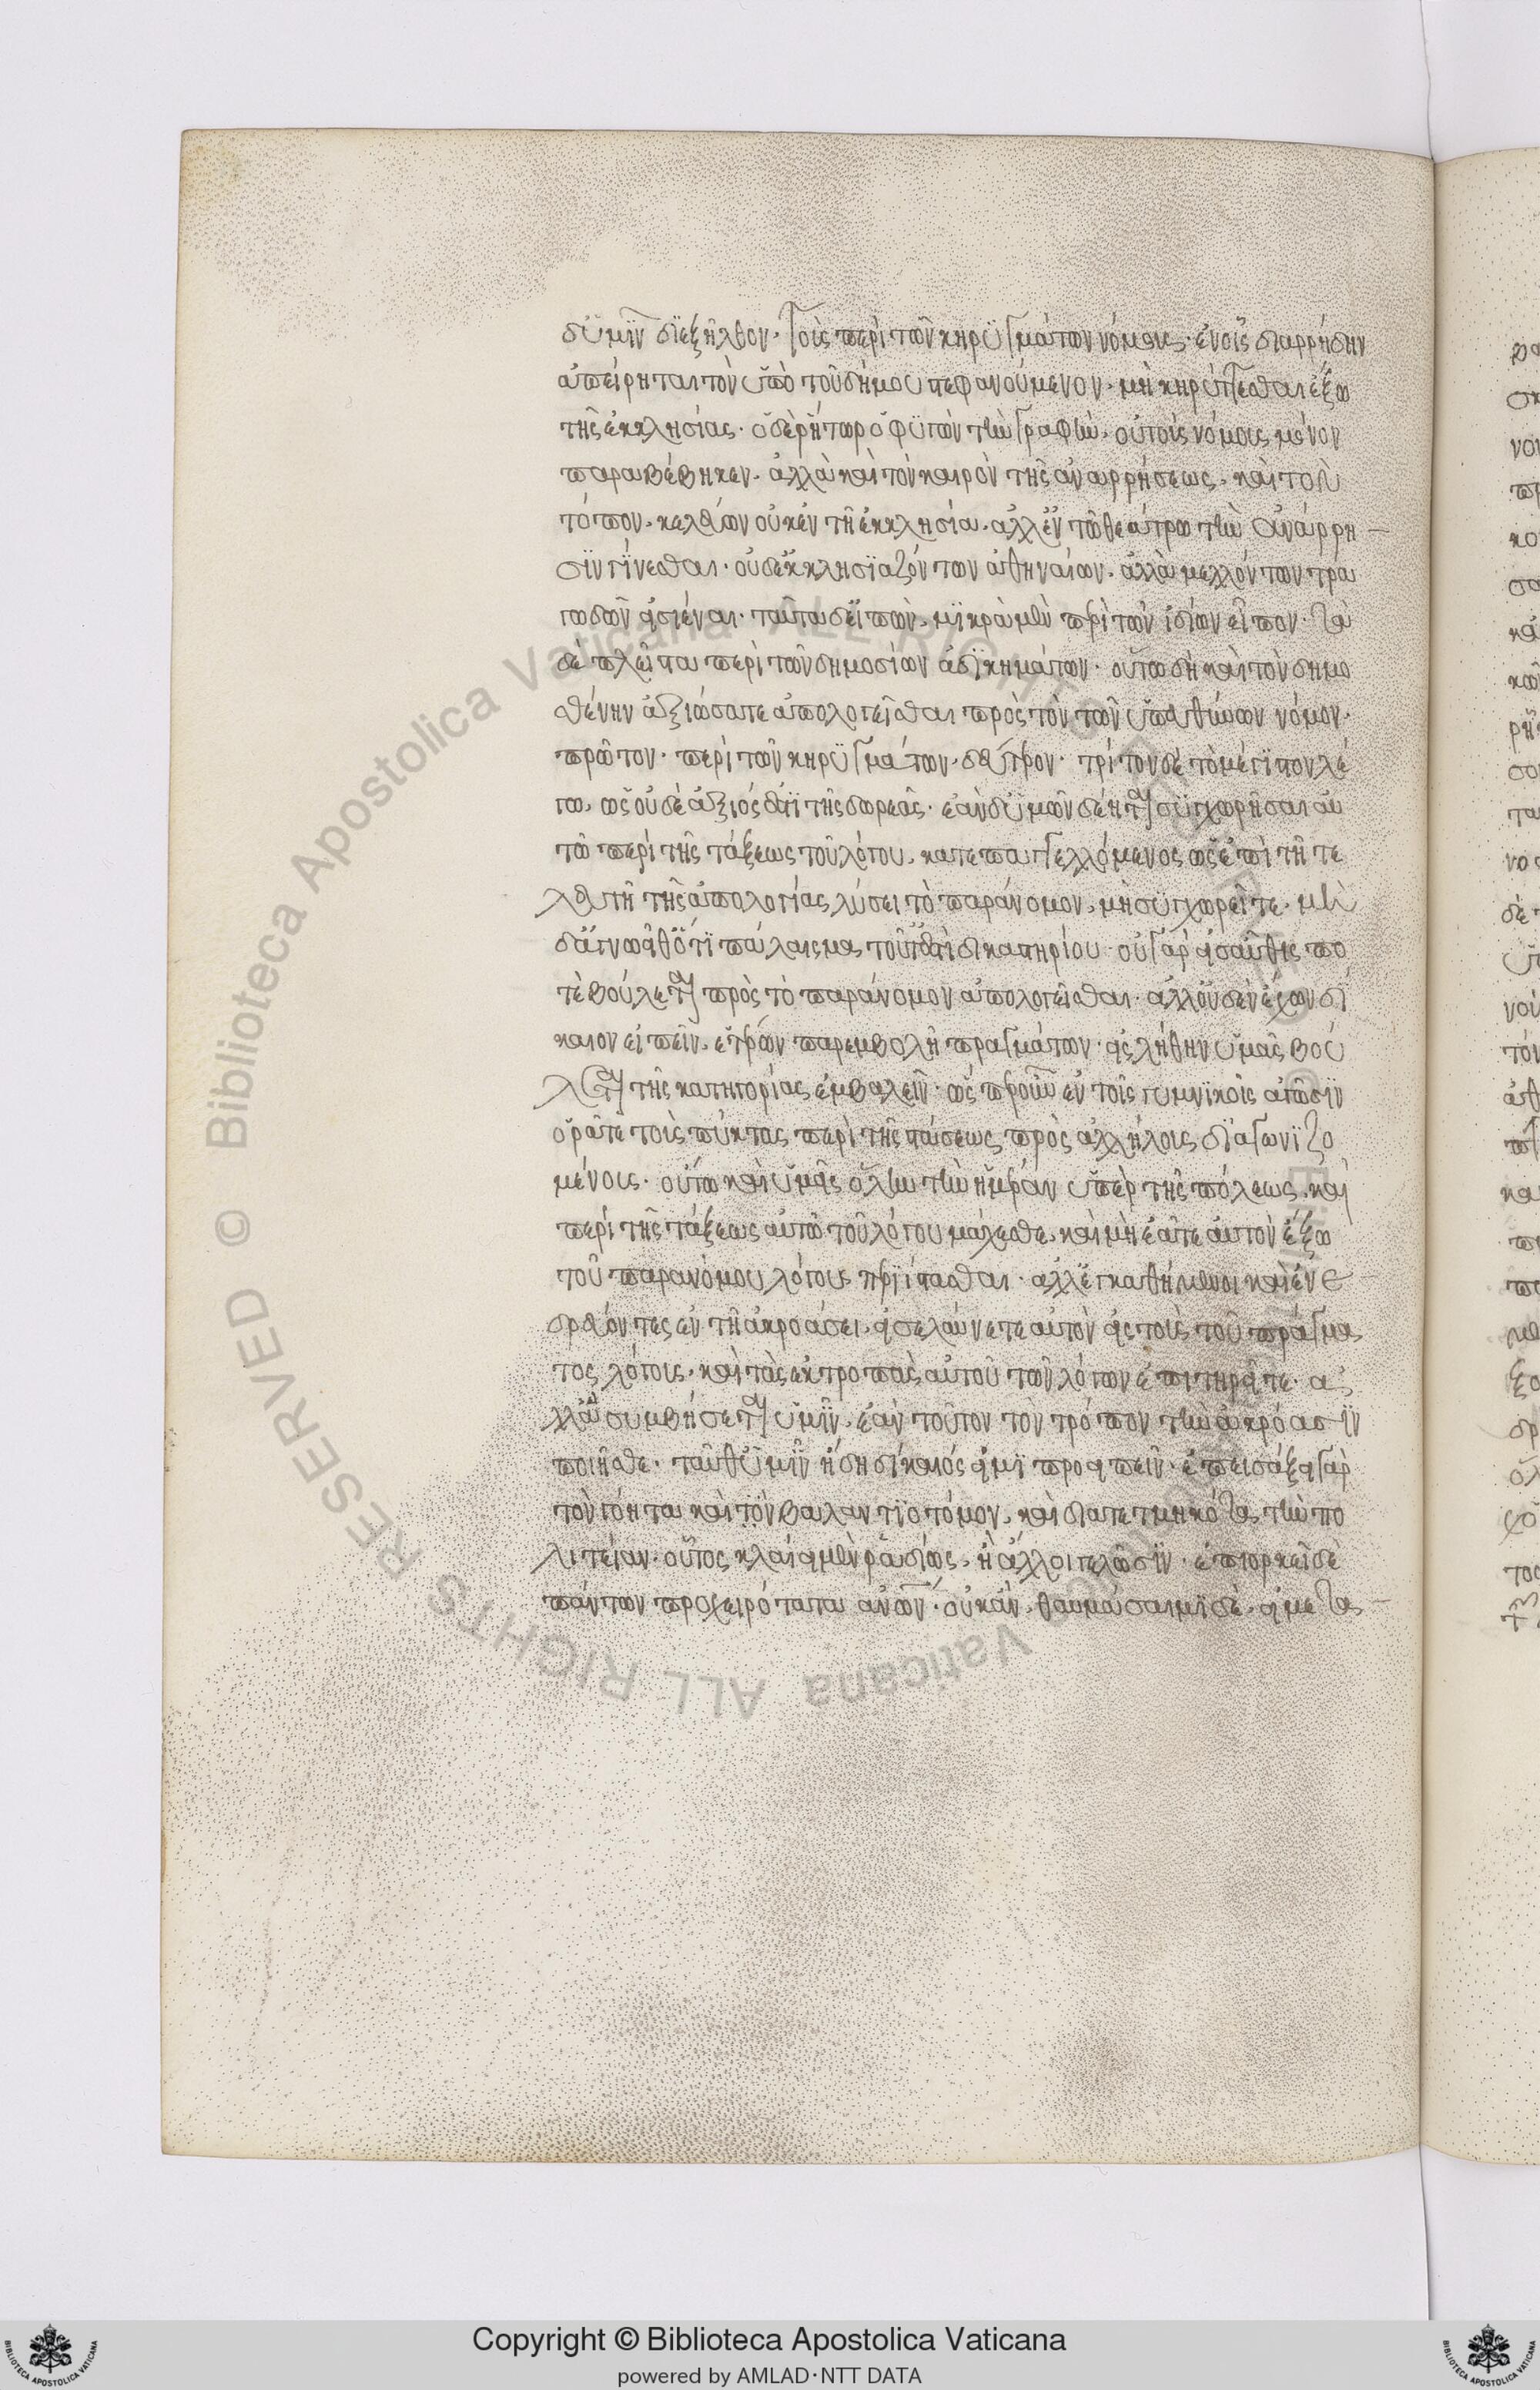 δ' ὑμῖν διεξῆλθον. τοὺς περὶ τῶν κηρυγμάτων νόμους. ἐν οἷς διαρρήδην
ἀπείρηται τὸν ὑπὸ τοῦ δήμου στεφανούμενον. μὴ κηρύττεσθαι ἔξω
τῆς ἐκκλησίας. ὁ δὲ ῥήτωρ ὁ φεύγων τὴν γραφὴν. οὐ τοὺς νόμους μόνον
παραβέβηκεν. ἀλλὰ καὶ τὸν καιρὸν τῆς ἀναρρήσεως. καὶ τὸν
τόπον. κελεύων οὐκ ἐν τῇ ἐκκλησίᾳ. ἀλλ' ἐν τῷ θεάτρῳ τὴν ἀνάρρη
σιν γίνεσθαι. οὐδ' ἐκκλησιαζόντων ἀθηναίων. ἀλλὰ μελλόντων τρα
γωδῶν εἰσιέναι. ταῦτα δ' εἰπὼν. μικρὰ μὲν περὶ τῶν ἰδίων εἶπον. τὰ
δὲ πλεῖστα περὶ τῶν δημοσίων ἀδικημάτων. οὕτω δὴ καὶ τὸν δημο
σθένην ἀξιώσατε ἀπολογεῖσθαι πρὸς τὸν τῶν ὑπευθύνων νόμον.
πρῶτον. περὶ τῶν κηρυγμάτων. δεύτερον. τρίτον δὲ τὸ μέγιστον λέ
γω. ὡς οὐδὲ ἄξιός ἐστι τῆς δωρεᾶς. ἐὰν δ' ὑμῶν δέηται συγχωρῆσαι αὐ
τῷ περὶ τῆς τάξεως τοῦ λόγου. κατεπαγγελλόμενος ὡς ἐπὶ τῇ τε
λευτῇ τῆς ἀπολογίας λύσει τὸ παράνομον. μὴ συγχωρεῖτε. μηδ'
ἀγνοεῖθ' ὅτι πάλαισμα τοῦτ' ἐστὶ δικαστηρίου. οὐ γὰρ εἰσαῦθίς πο
τε βούλεται πρὸς τὸ παράνομον ἀπολογεῖσθαι. ἀλλ' οὐδὲν ἔχων δί
καιον εἰπεῖν. ἑτέρων παρεμβολῇ πραγμάτων. εἰς λήθην ὑμᾶς βού
λεται τῆς κατηγορίας ἐμβαλεῖν. ὥσπερ οὖν ἐν τοῖς γυμνικοῖς ἀγῶσιν
ὁρᾶτε τοὺς πύκτας περὶ τῆς στάσεως πρὸς ἀλλήλους διαγωνιζο
μένους. οὕτω καὶ ὑμεῖς ὅλην τὴν ἡμέραν ὑπὲρ τῆς πόλεως. καὶ
περὶ τῆς τάξεως αὐτῷ τοῦ λόγου μάχεσθε. καὶ μὴ ἐᾶτε αὐτὸν ἔξω
τοῦ παρανόμου λόγους περιίστασθαι. ἀλλ' ἐγκαθήμενοι καὶ ἐνε
δρεύοντες ἐν τῇ ἀκροάσει. εἰσελαύνετε αὐτὸν εἰς τοὺς τοῦ πράγμα
τος λόγους. καὶ τὰς ἐκτροπὰς αὐτοῦ τῶν λόγων ἐπιτηρεῖτε. ἀ
λλ' ἃ συμβήσεται ὑμῖν. ἐὰν τοῦτον τὸν τρόπον τὴν ἀκρόασιν
ποιῆσθε. ταῦθ' ὑμῖν ἤδη δίκαιός εἰμι προειπεῖν. ἐπεισάξει γὰρ
τὸν γόητα καὶ τὸν βαλαντιοτόμον. καὶ διατετμηκότα τὴν πο
λιτείαν. οὗτος κλαίει μὲν ῥᾳδίως. ἢ ἄλλοι γελῶσιν. ἐπιορκεῖ δὲ
πάντων προχειρότατα ἀνθρώπων. οὐκ ἂν. θαυμάσαιμι δὲ. εἰ μετα
Copyright © Biblioteca Apostolica Vaticana
powered by AMLAD·NTT DATA